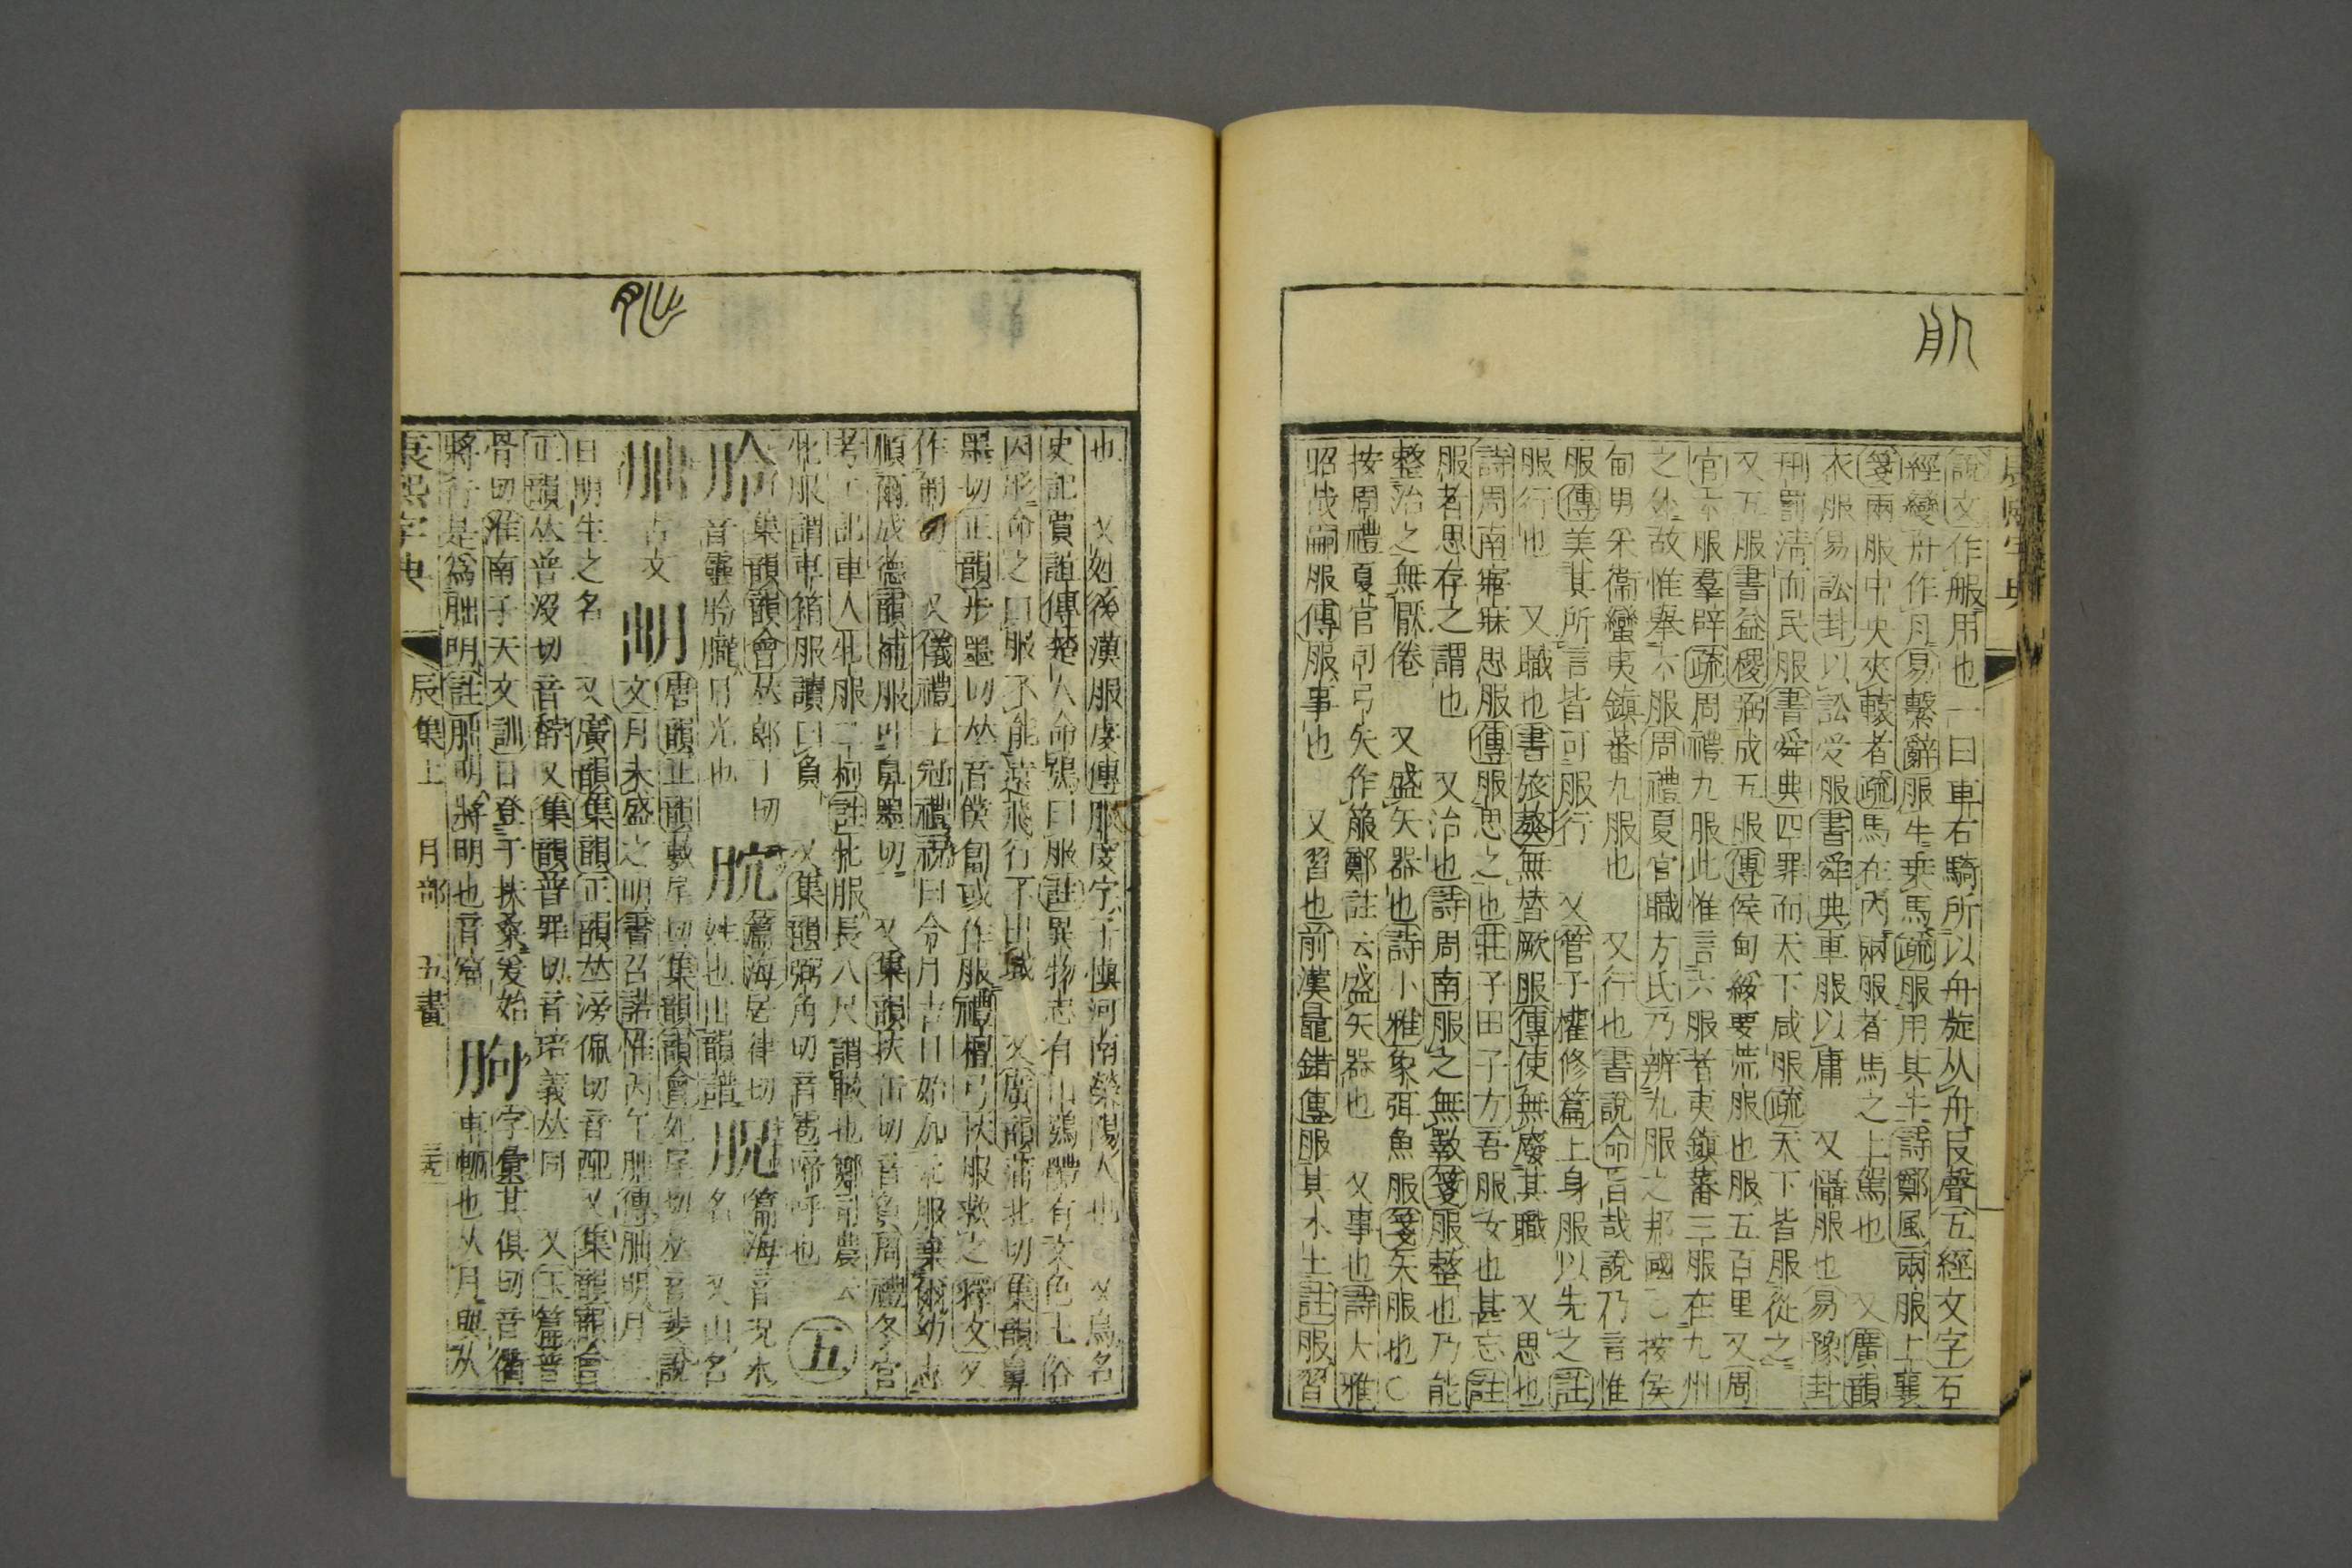 說文作𦨕用也一曰車右騎所以舟旋从舟𠬝聲五經文字石
經變舟作月易繫辭服牛乗馬疏服用其牛詩鄭風兩服上襄
箋兩服中央夾轅者疏馬在內兩服者馬之上駕也　又廣韻
衣服易訟卦以訟受服書舜典車服以庸　又懾服也易豫卦
刑罰清而民服書舜典四罪而天下咸服疏天下皆服從之
又五服書益稷弼成五服傳侯甸綏要荒服也服五百里又周
官六服羣辟疏周禮九服此惟言六服者夷鎮蕃三服在九州
之外故惟舉六服周禮夏官職方氏乃辨九服之邦國〇按侯
甸男采衞蠻夷鎮蕃九服也　又行也書說命旨哉說乃言惟
服傳美其所言皆可服行　又管子權修篇上身服以先之註
服行也　又職也書旅獒無替厥服傳使無廢其職　又思也
詩周南寤寐思服傳服思之也莊子田子方吾服女也甚忘註
服者思存之謂也　又治也詩周南服之無斁箋服整也乃能
整治之無厭倦　又盛矢器也詩小雅象弭魚服箋矢服也〇
按周禮夏官司弓矢作箙鄭註云盛矢器也　又事也詩大雅
昭哉嗣服傳服事也　又習也前漢鼂錯傳服其水土註服習
也　又姓後漢服虔傳服虔字子愼河南滎陽人也　又鳥名
史記賈誼傳楚人命鴞曰服註異物志有山鴞體有文色土俗
因形命之曰服不能遠飛行不出域　又廣韻蒲北切集韻鼻
墨切正韻步墨切𠀤音僕匐或作服禮檀弓扶服救之釋文又
作匍匐　又儀禮士冠禮祝曰令月吉日始加元服棄爾幼志
順爾成德韻補服叶鼻墨切　又集韻扶缶切音負周禮冬官
考工記車人牝服二柯註牝服長八尺謂較也鄭司農云
牝服謂車箱服讀曰負　又集韻弼角切音雹㗊呼也　五
朎　集韻韻會𠀤郎丁切音靈朎朧月光也
篇海音況水名　又山名
朏　古文　唐韻正韻敷尾切集韻韻會妃尾切𠀤音斐說
文月未盛之明書召誥惟丙午朏傳朏明也月三
日明生之名　又廣韻集韻正韻𠀤滂佩切音配又集韻韻會
正韻𠀤普沒切音𦤎又集韻普罪切音琣義𠀤同　又玉篇普
骨切淮南子天文訓日登于扶桑爰始
將行是爲朏明註朏明將明也音窟
朐　字彙其俱切音衢車軶也从月與从
康熙字典　辰集上　月部　五畫